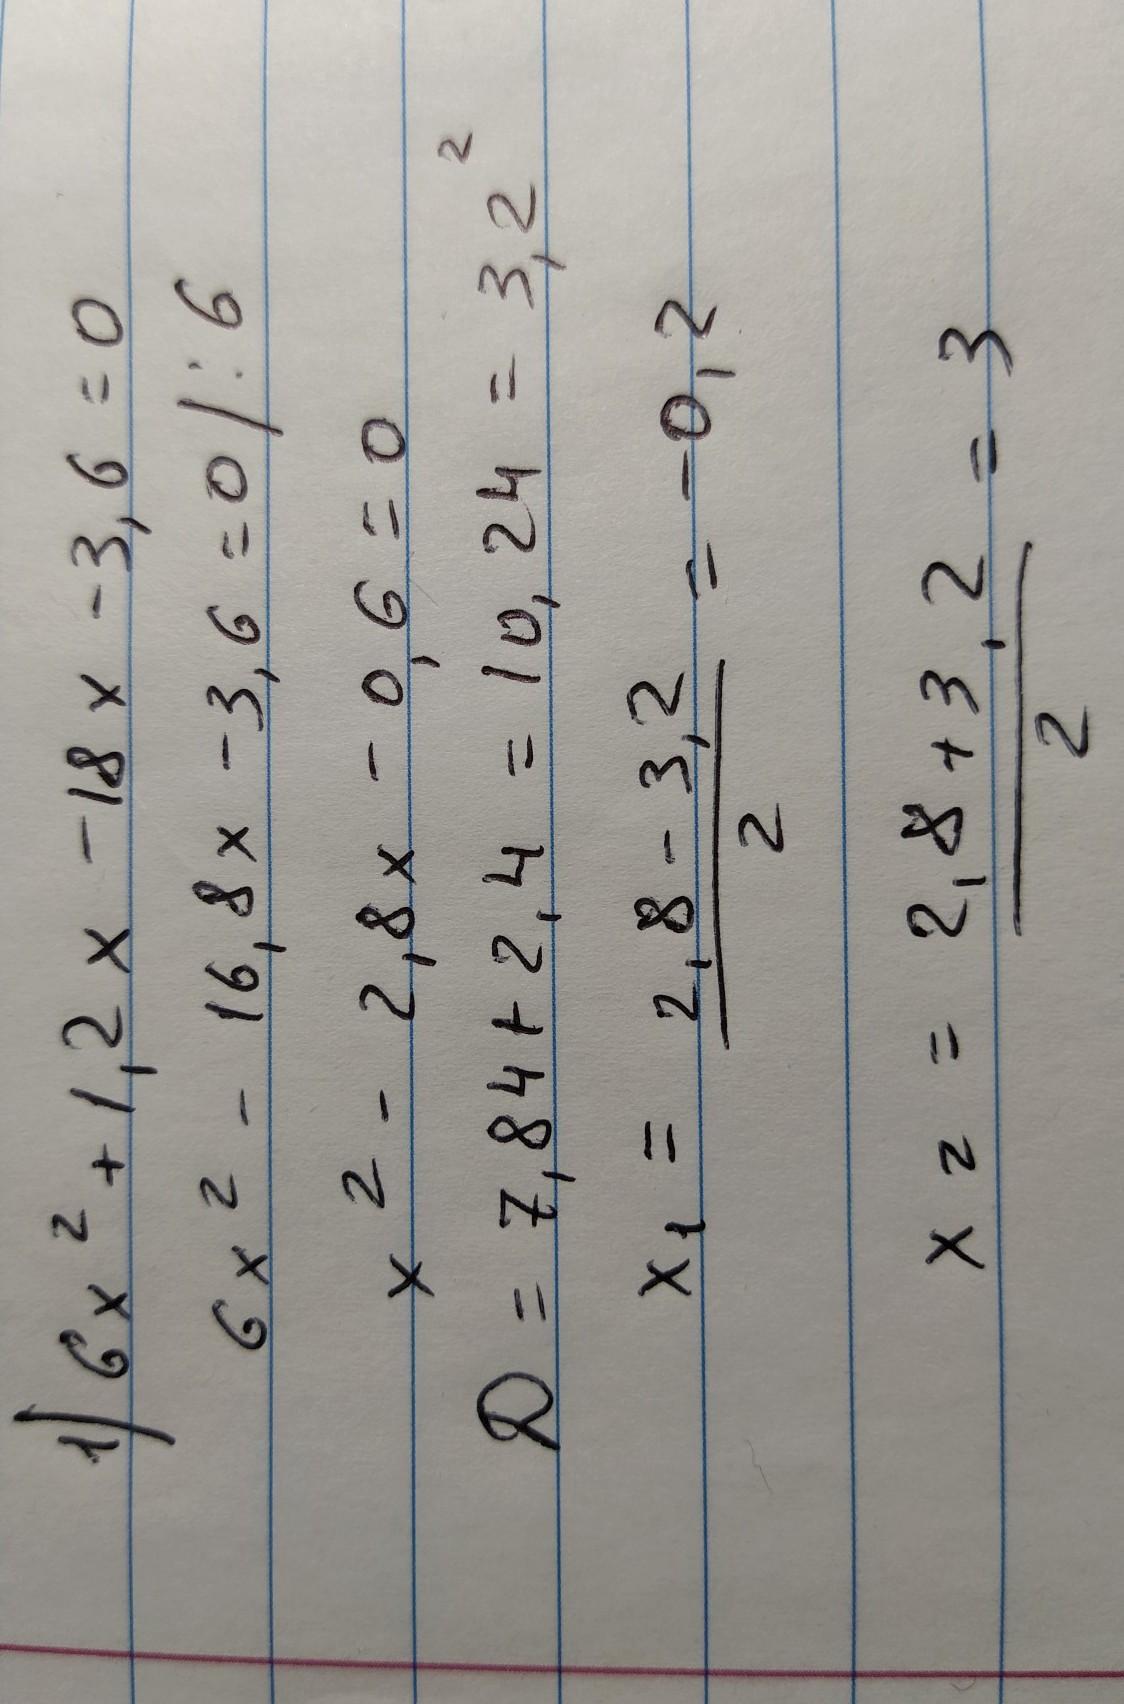 1) 6x² + 1,2x - 18x - 3,6 = 0
6x² - 16,8x - 3,6 = 0 /: 6
x² - 2,8x - 0,6 = 0
D = 7,84 + 2,4 = 10,24 = 3,2²
x₁ = (2,8 - 3,2)/2 = -0,2
x₂ = (2,8 + 3,2)/2 = 3